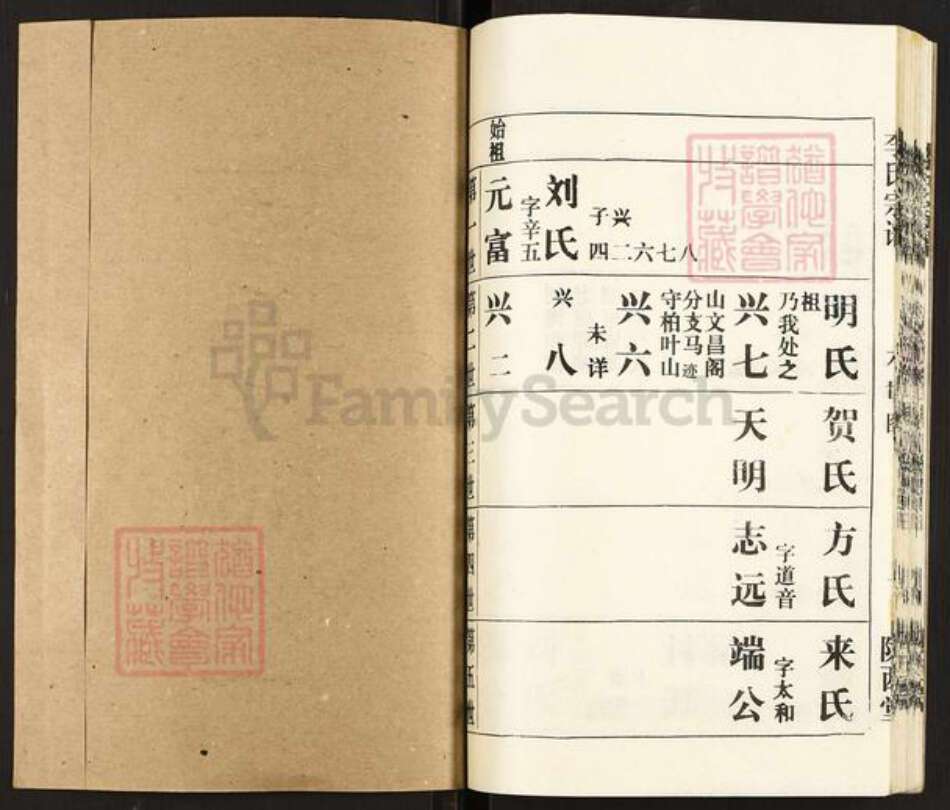 始祖
第一世
元富
字辛五
刘氏
子 兴
四 二六七八
第二世
兴二
兴八
未详
兴六
守柏叶山
分支马迹
山文昌阁
兴七
乃我处之
祖
明氏
第三世
天明
贺氏
第四世
志远
字道音
方氏
第五世
端公
字太和
来氏
李氏宗谱
陇西堂
FamilySearch